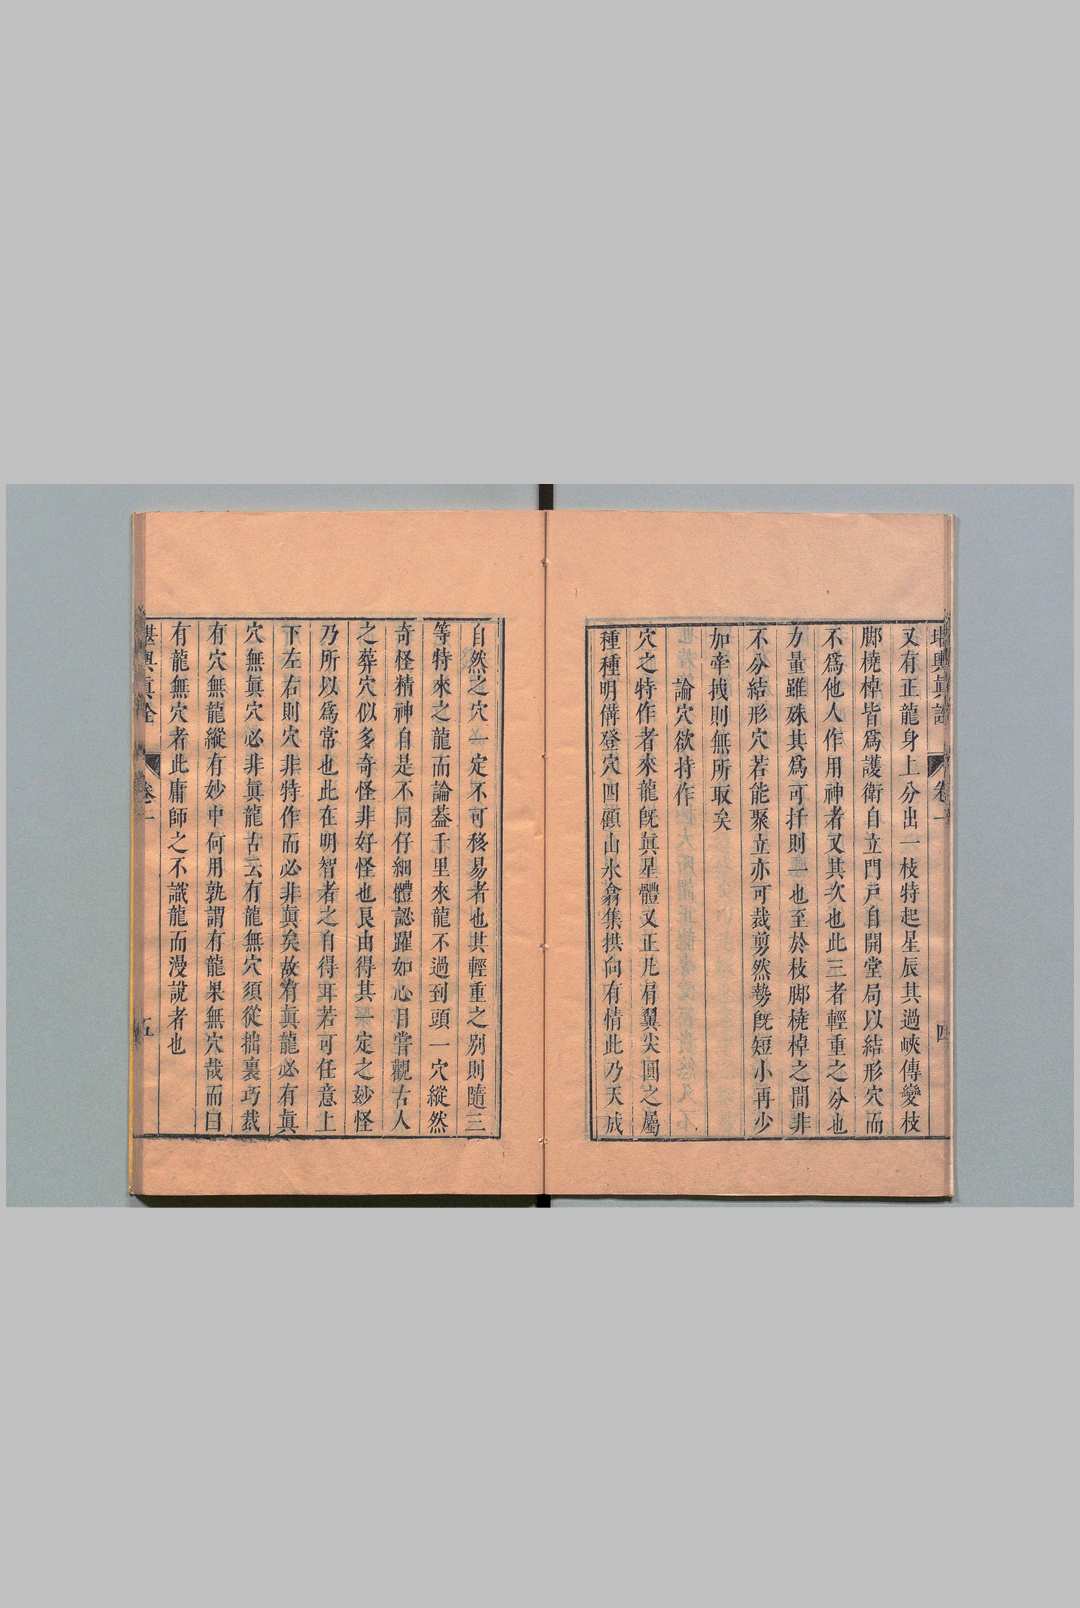 堪輿眞詮 卷一 四
又有正龍身上分出一枝特起星辰其過峽傳變枝
脚橈棹皆爲護衛自立門戸自開堂局以結形穴而
不爲他人作用神者又其次也此三者輕重之分也
力量雖殊其爲可扦則一也至於枝脚橈棹之間非
不分結形穴若能聚立亦可裁剪然勢旣短小再少
加牽拽則無所取矣
論穴欲持作
穴之特作者來龍旣眞星體又正凡肩翼尖圓之屬
種種明備登穴四顧山水翕集拱向有情此乃天成
自然之穴一定不可移易者也其輕重之别則隨三
等特來之龍而論葢千里來龍不過到頭一穴縱然
奇怪精神自是不同仔細體認躍如心目嘗觀古人
之葬穴似多奇怪非好怪也良由得其一定之妙怪
乃所以爲常也此在明智者之自得耳若可任意上
下左右則穴非特作而必非眞矣故有眞龍必有眞
穴無眞穴必非眞龍古云有龍無穴須從拙裏巧裁
有穴無龍縱有妙中何用孰謂有龍果無穴哉而曰
有龍無穴者此庸師之不識龍而漫說者也
堪輿眞詮 卷一 五